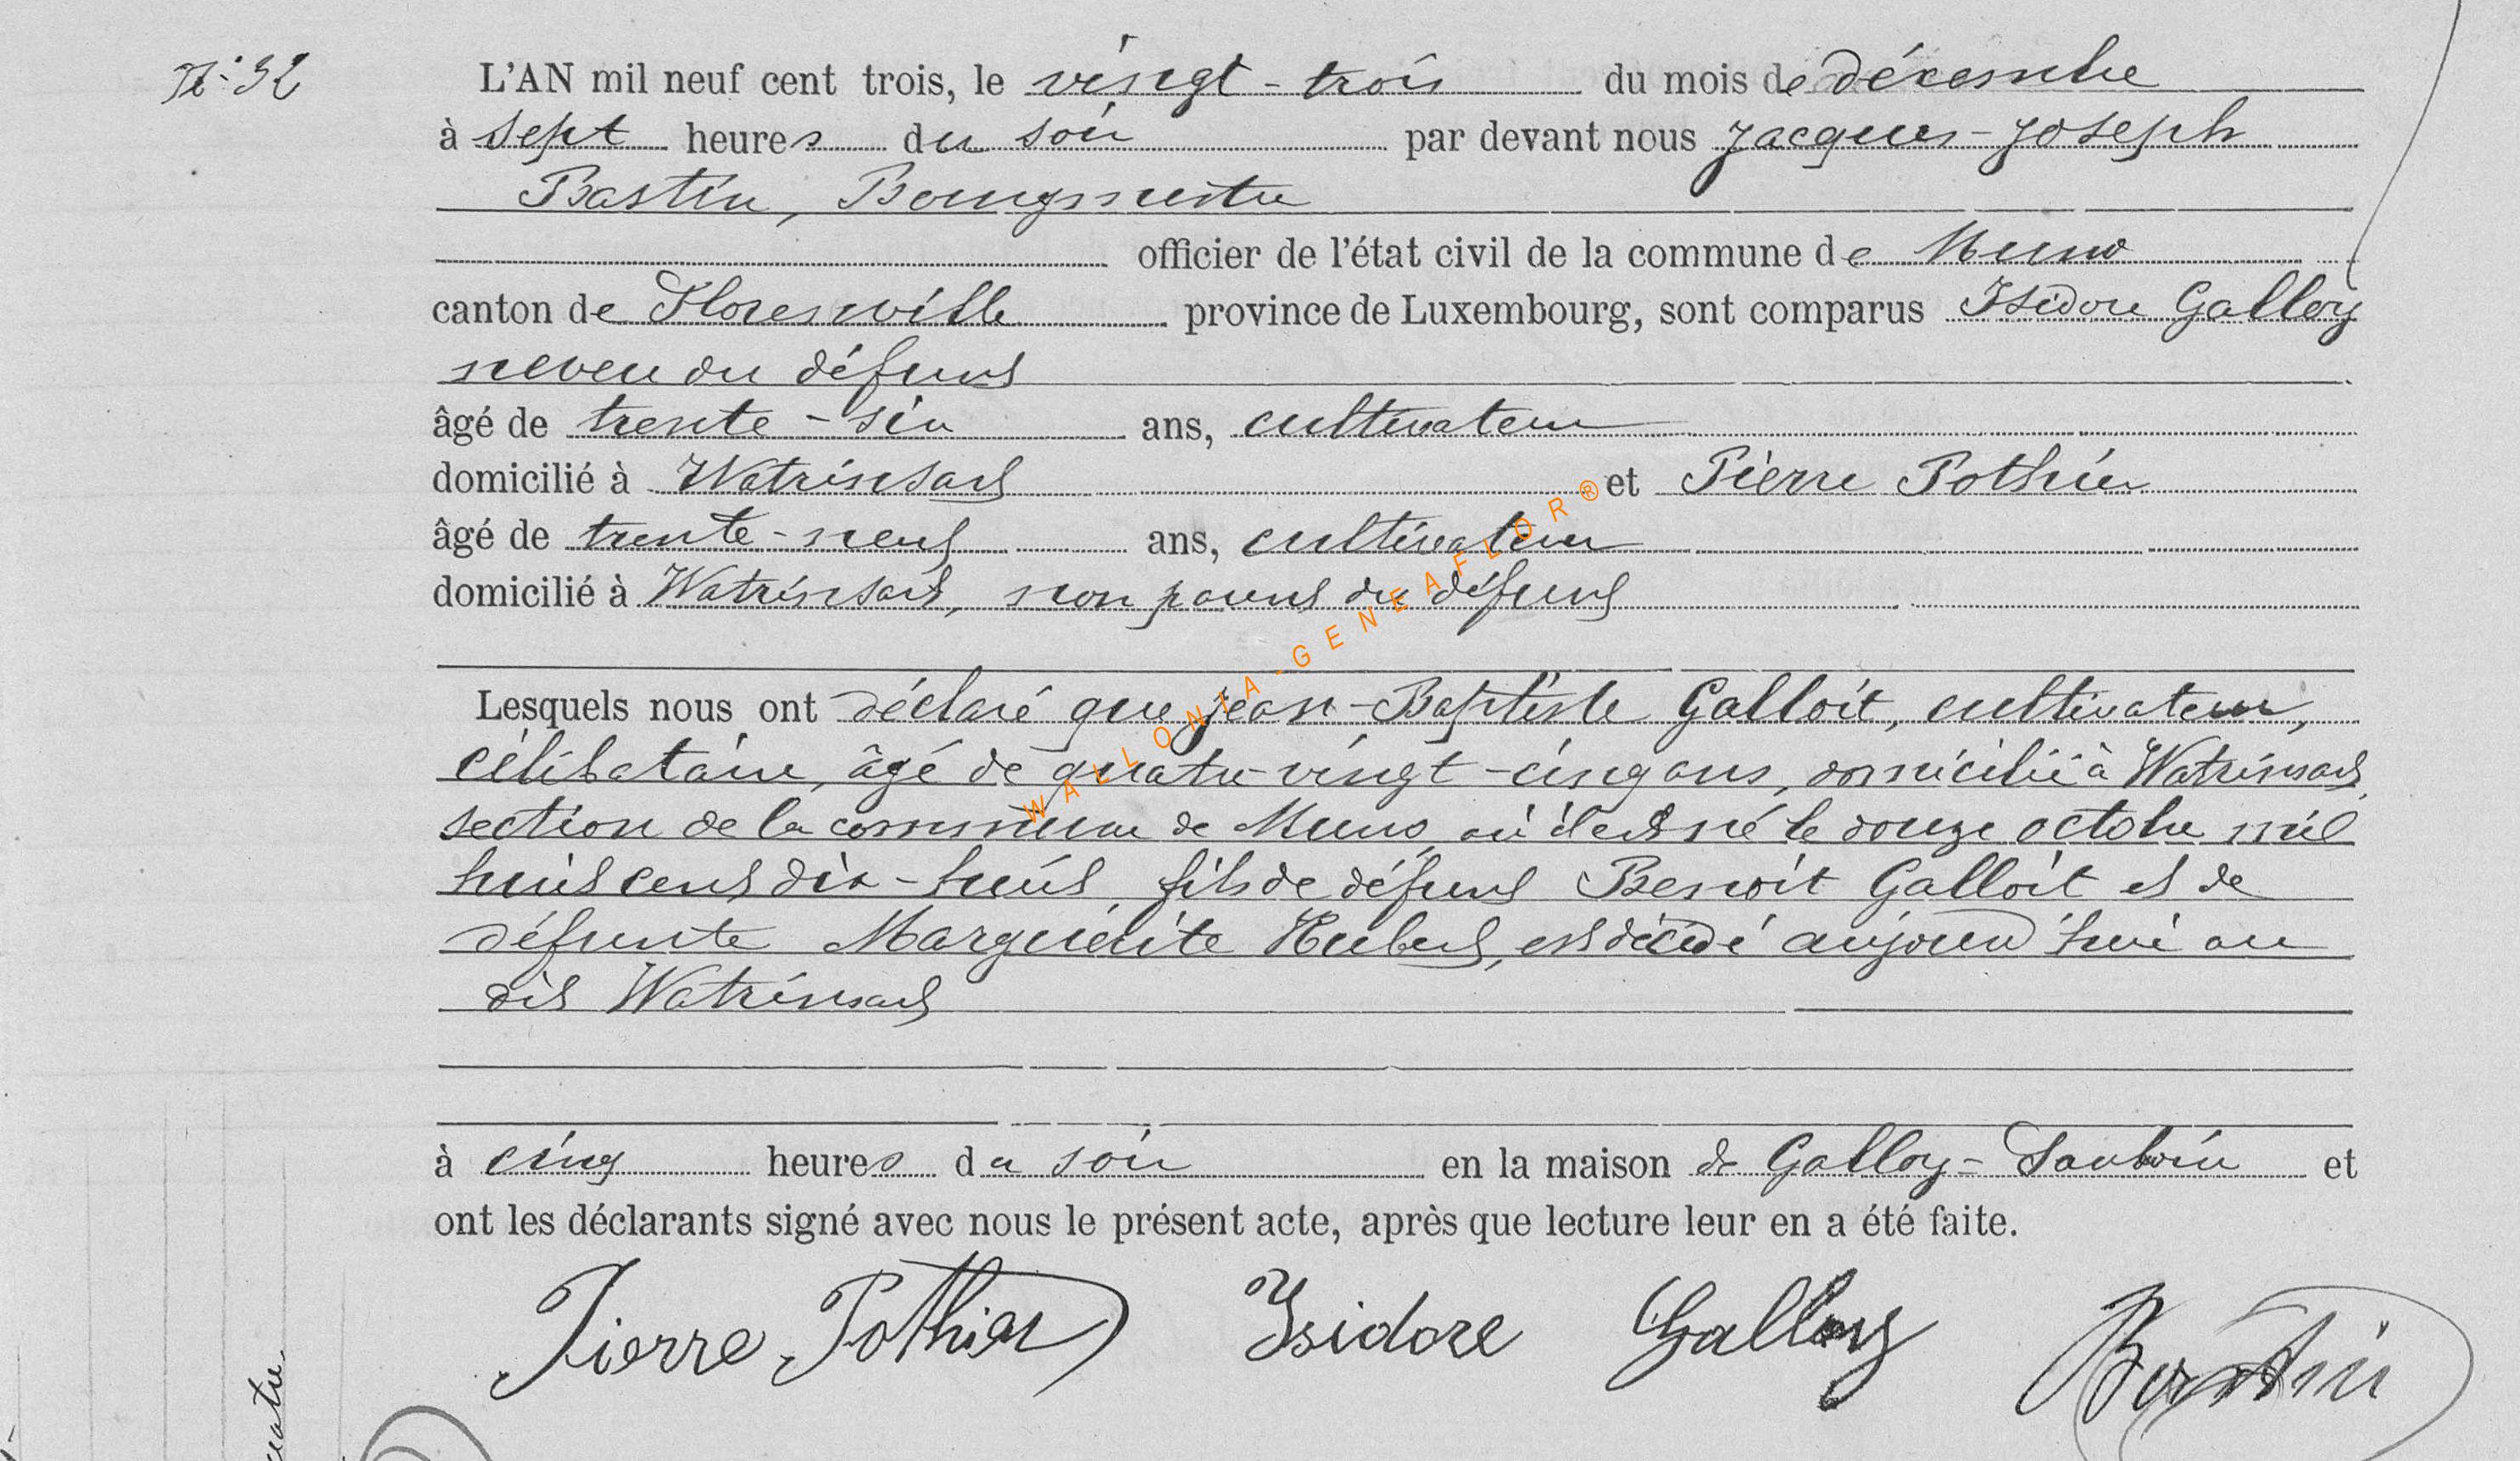 N° 32
L'AN mil neuf cent trois, le vingt-trois du mois de décembre
à sept heures du soir par devant nous Jacques-Joseph
Bastin, Bourgmestre
officier de l'état civil de la commune de Muno
canton de Florenville province de Luxembourg, sont comparus Isidore Galloy
neveu du défunt
âgé de trente-six ans, cultivateur
domicilié à Watrinsart et Pierre Pothier
âgé de trente-neuf ans, cultivateur
domicilié à Watrinsart, non parent du défunt
Lesquels nous ont déclaré que Jean-Baptiste Galloit, cultivateur,
célibataire, âgé de quatre-vingt-cinq ans, domicilié à Watrinsart,
section de la commune de Muno, où il est né le douze octobre mil
huit cent dix-huit, fils de défunt Benoit Galloit et de
défunte Marguerite Hubert, est décédé aujourd'hui au
dit Watrinsart
à cinq heures du soir en la maison de Galloy- et
ont les déclarants signé avec nous le présent acte, après que lecture leur en a été faite.
Pierre Pothier Isidore Galloy Bastin
WALLONIA-GENEAFLOR®